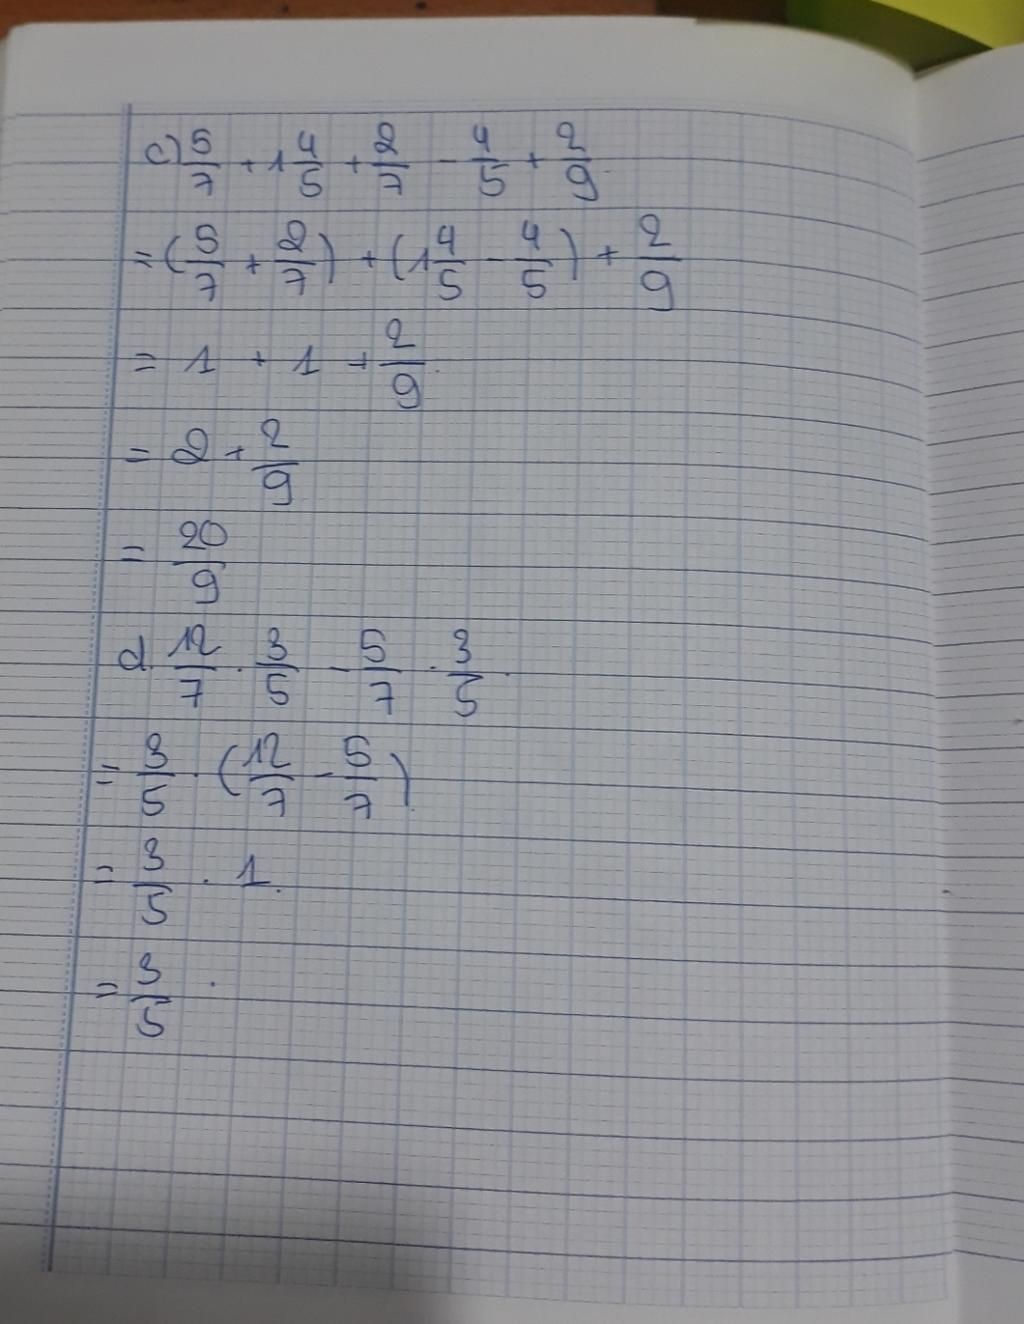 c) 5/7 + 1 4/5 + 2/7 - 4/5 + 2/9
= (5/7 + 2/7) + (1 4/5 - 4/5) + 2/9
= 1 + 1 + 2/9
= 2 + 2/9
= 20/9
d. 12/7 . 3/5 - 5/7 . 3/5
= 3/5 . (12/7 - 5/7)
= 3/5 . 1
= 3/5 .